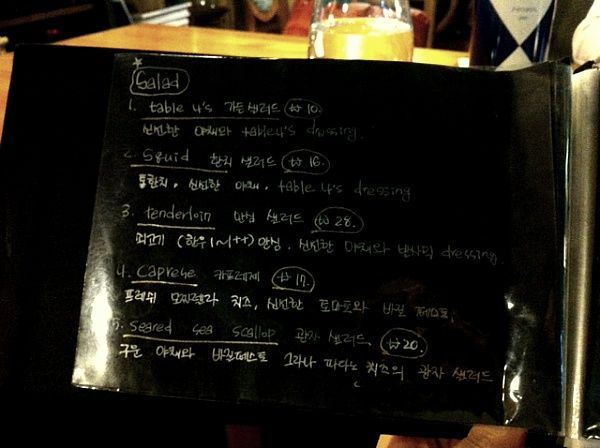 Salad
1. table 4's 가든 샐러드 ₩10.
신선한 야채와 table4's dressing.
2. Squid 한치 샐러드 ₩16.
통한치, 신선한 야채, table 4's dressing
3. tenderloin 안심 샐러드 ₩28.
쇠고기 (한우1~1++) 안심, 신선한 야채와 발사믹 dressing.
4. Caprese 카프레제 ₩17.
프레쉬 모짜렐라 치즈, 신선한 토마토와 바질 페스토.
5. seared sea scallop 관자 샐러드 ₩20.
구운 야채와 바질페스토 그라나 파다노 치즈의 관자 샐러드